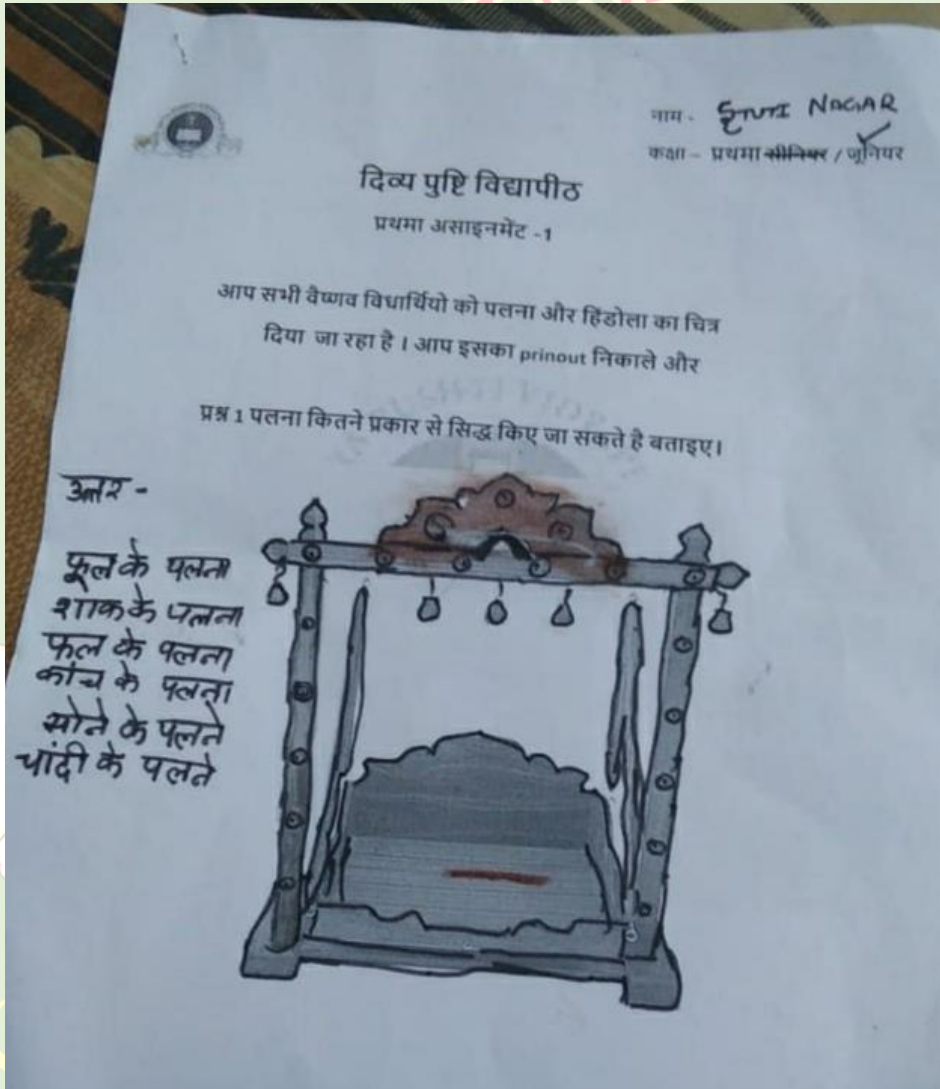 नाम - STUTI NAGAR
कक्षा - प्रथमा सीनियर / जूनियर
दिव्य पुष्टि विद्यापीठ
प्रथमा असाइनमेंट -1
आप सभी वैष्णव विधार्थियो को पलना और हिंडोला का चित्र
दिया जा रहा है । आप इसका prinout निकाले और
प्रश्न 1 पलना कितने प्रकार से सिद्ध किए जा सकते है बताइए।
उत्तर -
फूल के पलना
शाक के पलना
फल के पलना
कांच के पलना
सोने के पलने
चांदी के पलने